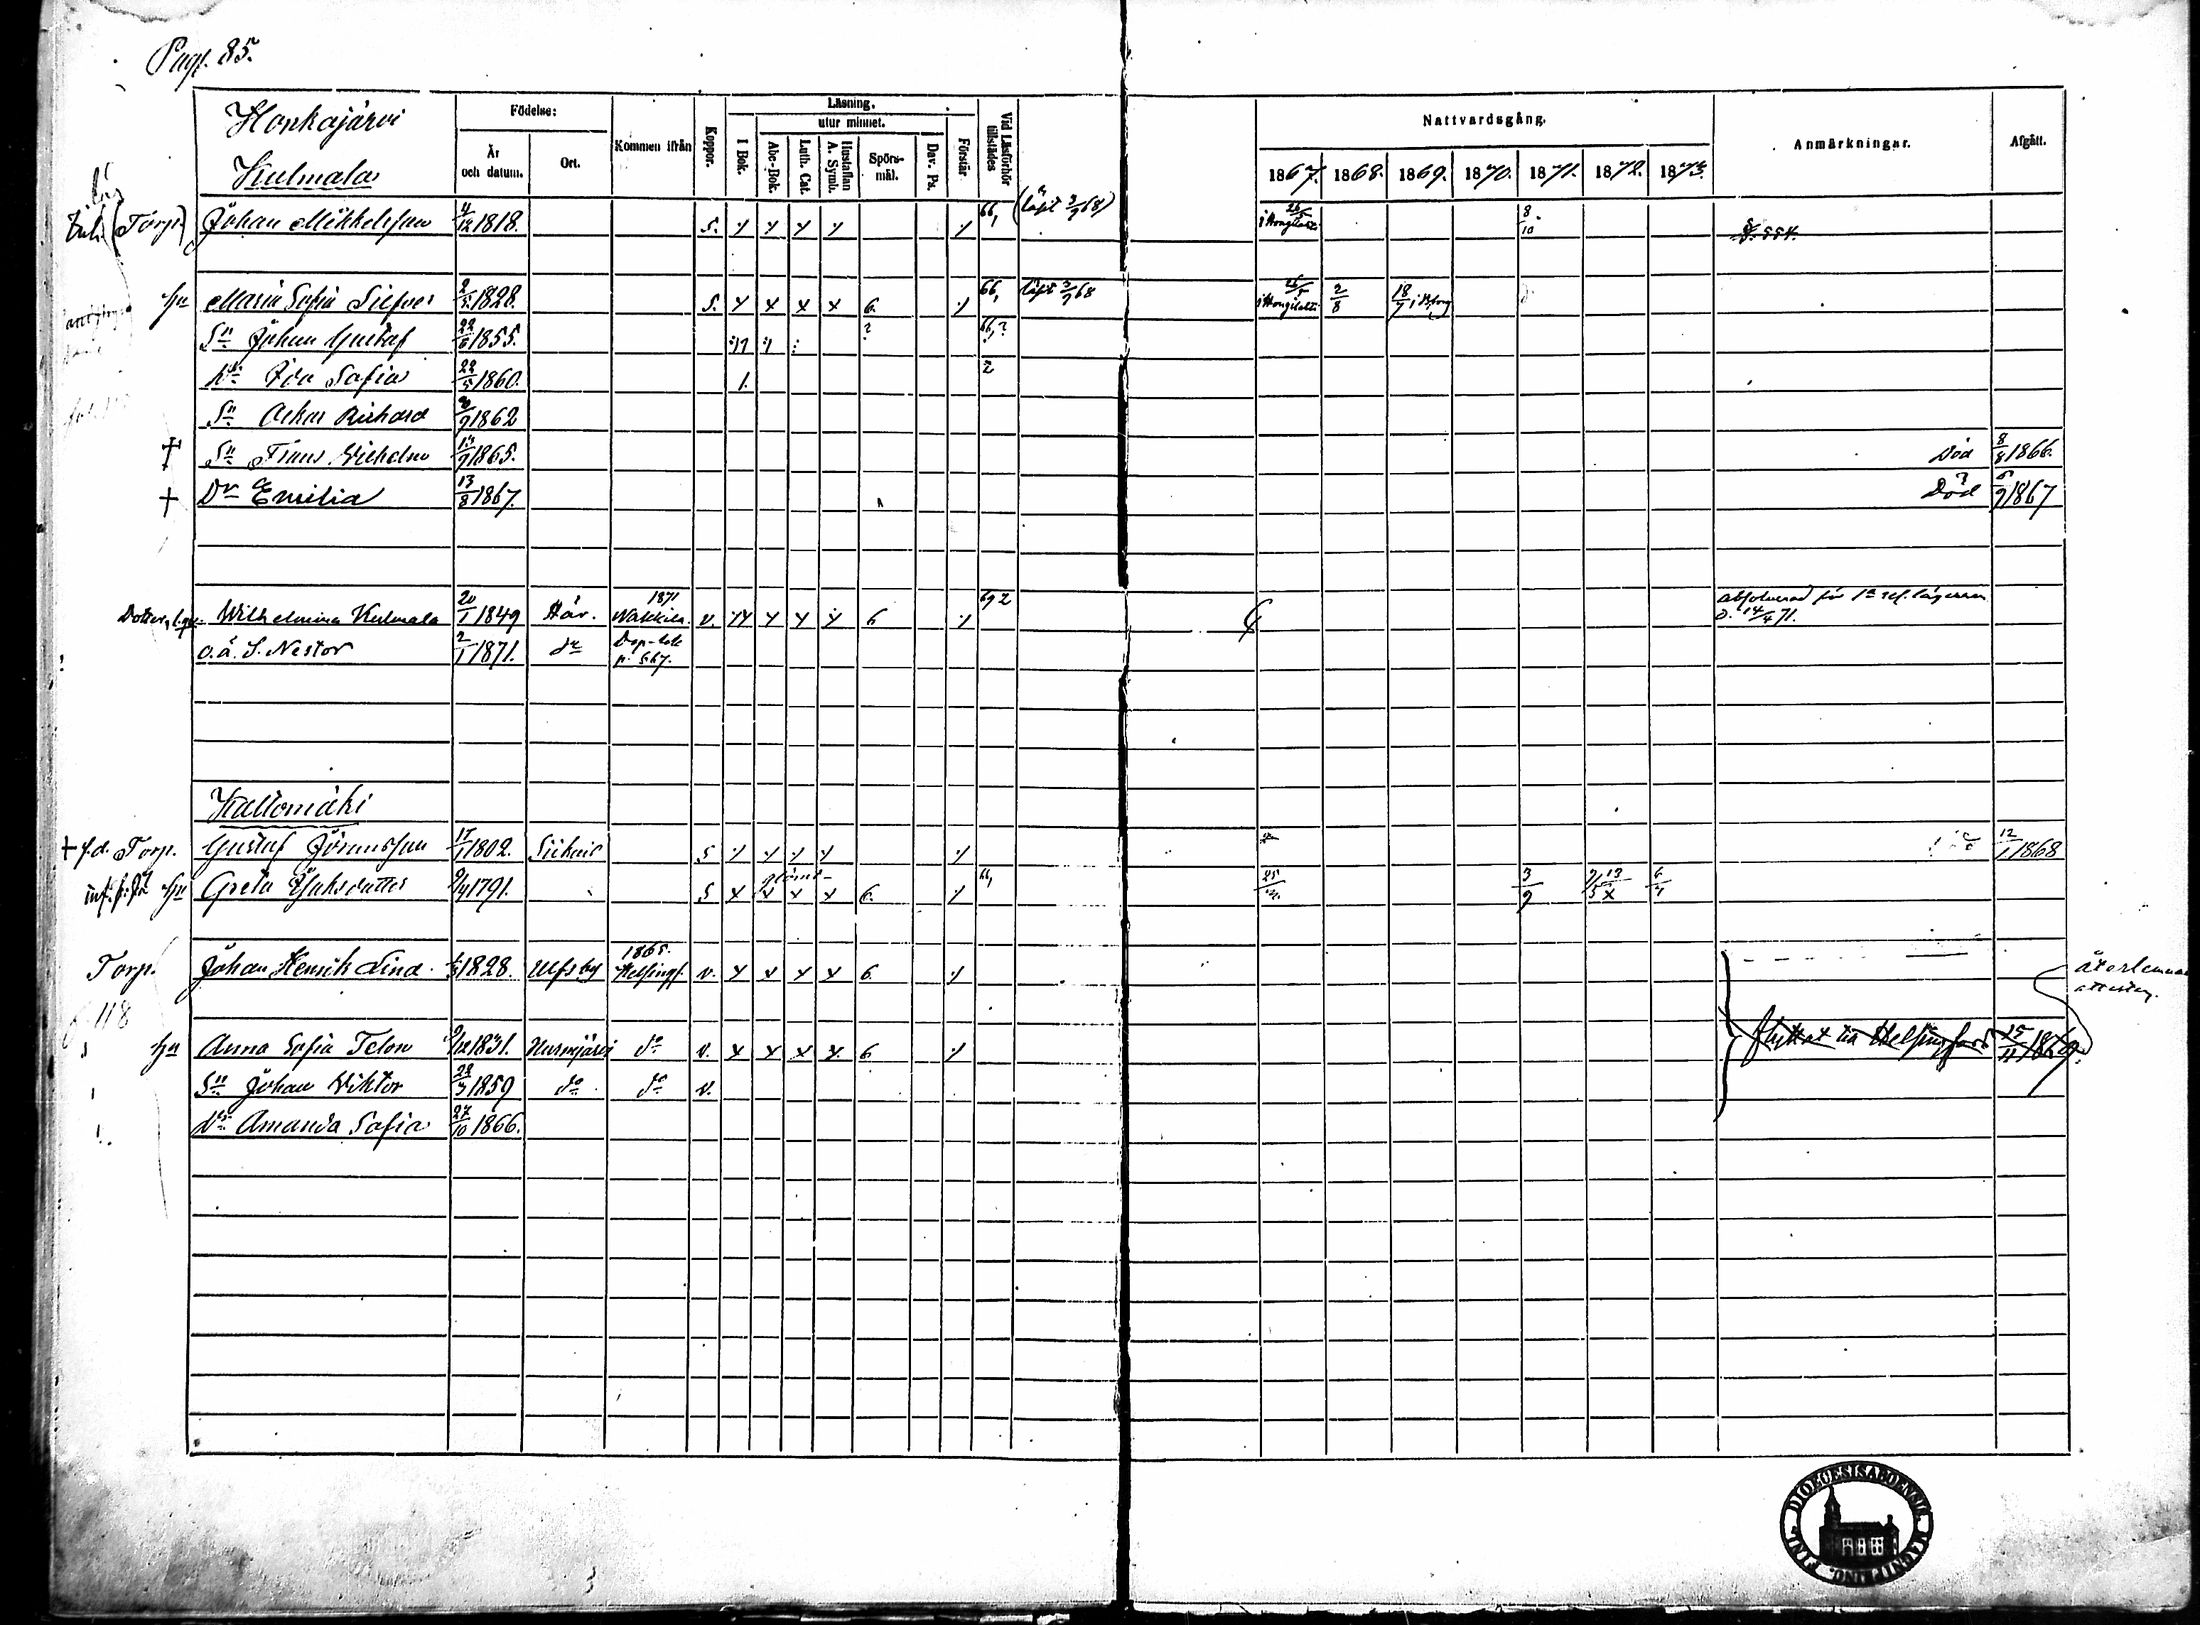 Pag. 85.
Honkajärvi
Kulmala
Födelse:
År och datum.
Ort.
Kommen ifrån
Koppor.
Läsning.
I Bok.
utur minnet.
Abc-Bok.
Luth. Cat.
Hustaflan A. Symb.
Spörs-mål.
Dav. Ps.
Förstår.
Vid Läsförhör tillstädes
Nattvardsgång.
1867. 1868. 1869. 1870. 1871. 1872. 1873.
Anmärkningar.
Afgått.
(Torp.) Johan Mikkelsson 4/12 1818. S. 66, (läst 3/7 68) 26/5 i Honkilaks 8/10
Hu Maria Sofia Silfver 2/5 1828. S. 6. 66, läst 3/7 68 26/5 i Honkilaks 2/8 18/7
Sn Johan Gustaf 22/6 1855. ? 66, ?
Dr Ida Sofia 22/5 1860. 2
Sn Oskar Richard 1862
† Sn Frans Wilhelm 1865. Död 8/8 1866.
† Dr Emilia 13/8 1867. Död 1867
Wilhelmina Kulmala 20/1 1849 Håv. 1871 Nakkila. v. 6 69 2 d. 14/4 71.
o.ä. S. Nestor 2/1 1871. do Dop-bok p. 567.
Kallomäki
† f.d. Torp. Gustaf Göransson 17/1 1802. Siikais S 12/1 1868
Hu Greta Jaksdatter 9/4 1791. S glömt 6. 66, 3/9
Torp. Johan Henrik Lind. 1828. Ulfsby 1865. Helsingf. v. 6.
118
Hu Anna Sofia Telon 9/12 1831. Nurmijärvi do v. 6 flyttat till Helsingfors 25/11 1869.
Sn Johan Viktor 28/3 1859 do do v.
Dr Amanda Sofia 27/10 1866.
DIOECESIS ABOENSIS